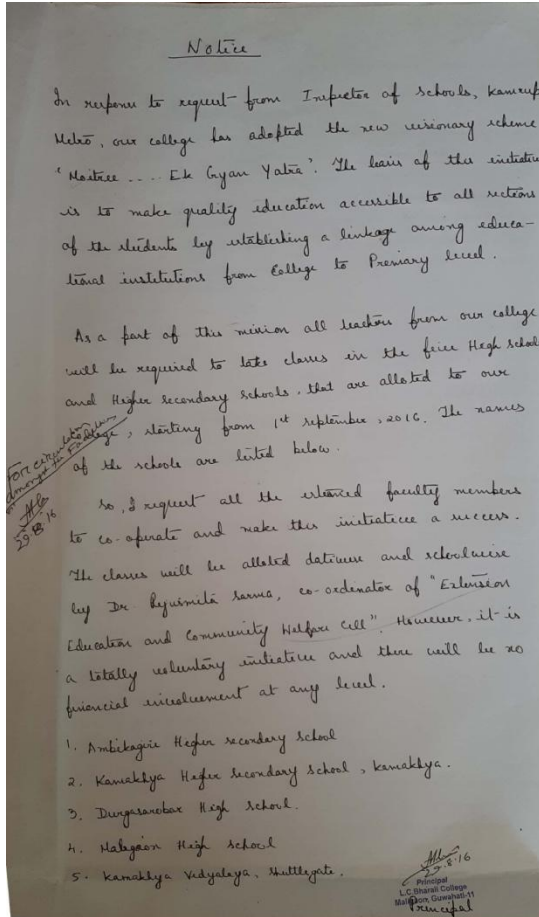 Notice
In response to request from Inspector of Schools, Kamrup
Metro, our college has adopted the new visionary scheme
'Moitree .... Ek Gyan Yatra'. The basis of this initiative
is to make quality education accessible to all sections
of the students by establishing a linkage among educa-
tional institutions from College to Premiary level.
As a part of this mission all teachers from our college
will be required to take classes in the five High School
and Higher secondary schools, that are alloted to our
college, starting from 1st September, 2016. The names
of the schools are listed below.
For circulation
amongst the Faculty
29.8.16
So, I request all the esteemed faculty members
to co-operate and make this initiative a success.
The classes will be alloted datewise and schoolwise
by Dr. Pyusmita Sarma, co-ordinator of "Extension
Education and Community Welfare Cell". However, it is
a totally voluntary initiative and there will be no
financial involvement at any level.
1. Ambikagiri Higher secondary school
2. Kamakhya Higher secondary school, Kamakhya.
3. Durgasarobar High school.
4. Maligaon High school
5. Kamakhya Vidyalaya, Shuttlegate.
29.8.16
Principal
L.C.Bharali College
Maligaon, Guwahati-11
Principal